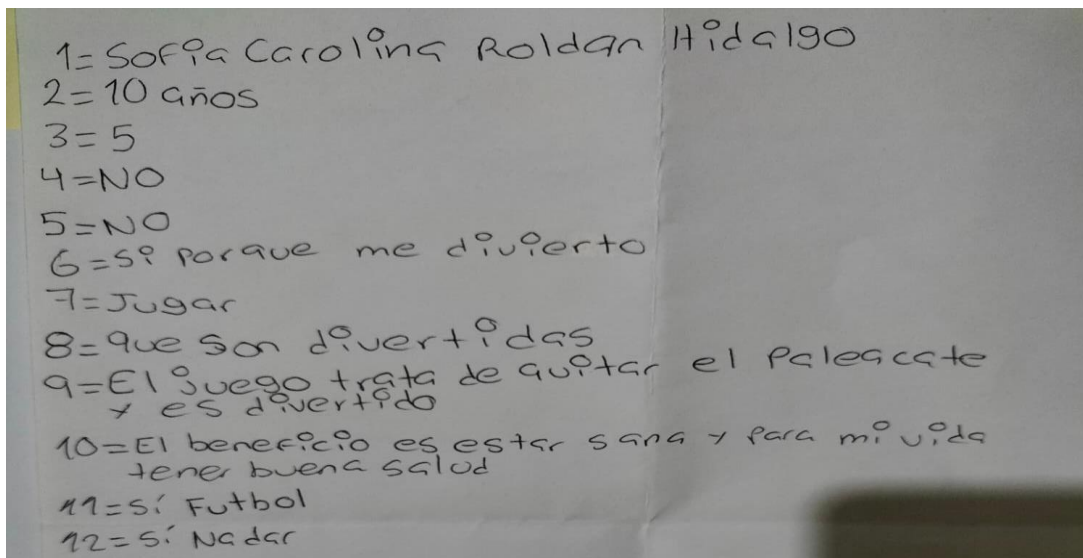 1= Sofia Carolina Roldan Hidalgo
2= 10 años
3= 5
4= NO
5= NO
6= Si Porque me divierto
7= Jugar
8= que son divertidas
9= El juego trata de quitar el Paleacate
y es divertido
10= El beneficio es estar sana y Para mi vida
tener buena salud
11= Sí Futbol
12= Sí Nadar